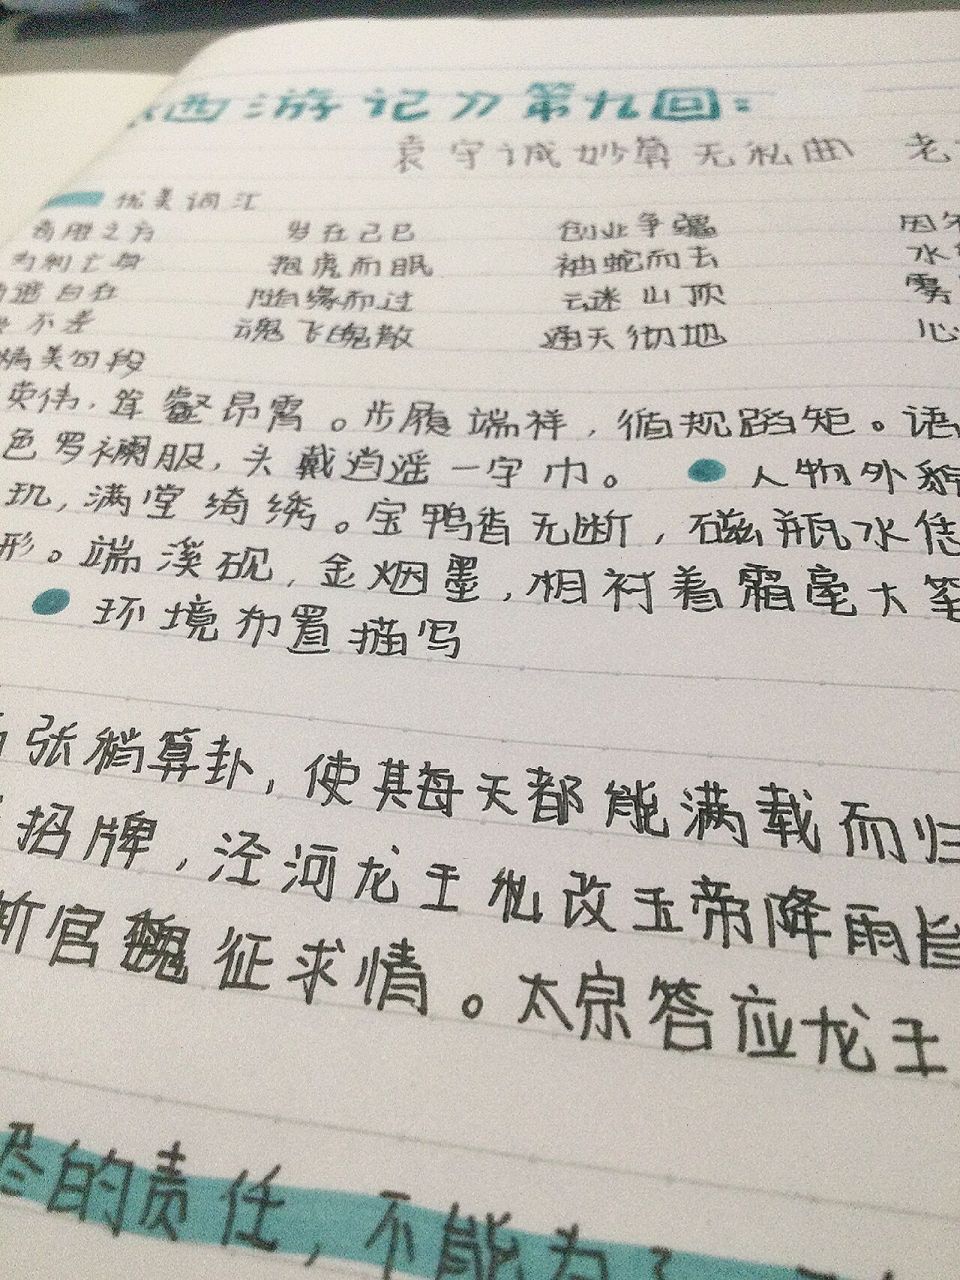 西游记》第九回:
袁守诚妙算无私曲 老
优美词汇
岁在己巳 创业争疆
抱虎而眠 袖蛇而去 水
而过 云迷山顶 雾
不差 魂飞魄散 通天彻地 心
精美句段
英伟,耸壑昂霄。步履端祥,循规蹈矩。语
色罗襕服,头戴逍遥一字巾。 人物外貌
玑,满堂绮绣。宝鸭香无断,磁瓶水恁
形。端溪砚,金烟墨,相衬着霜毫大笔
环境布置描写
张稍算卦,使其每天都能满载而归
招牌,泾河龙王私改玉帝降雨旨
断官魏征求情。太宗答应龙王
的责任,不能为了